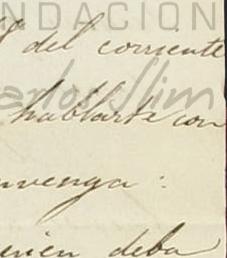 NDACIÓN
del corriente
Carlos Slim
hablarte con
nvenga:
quien deba